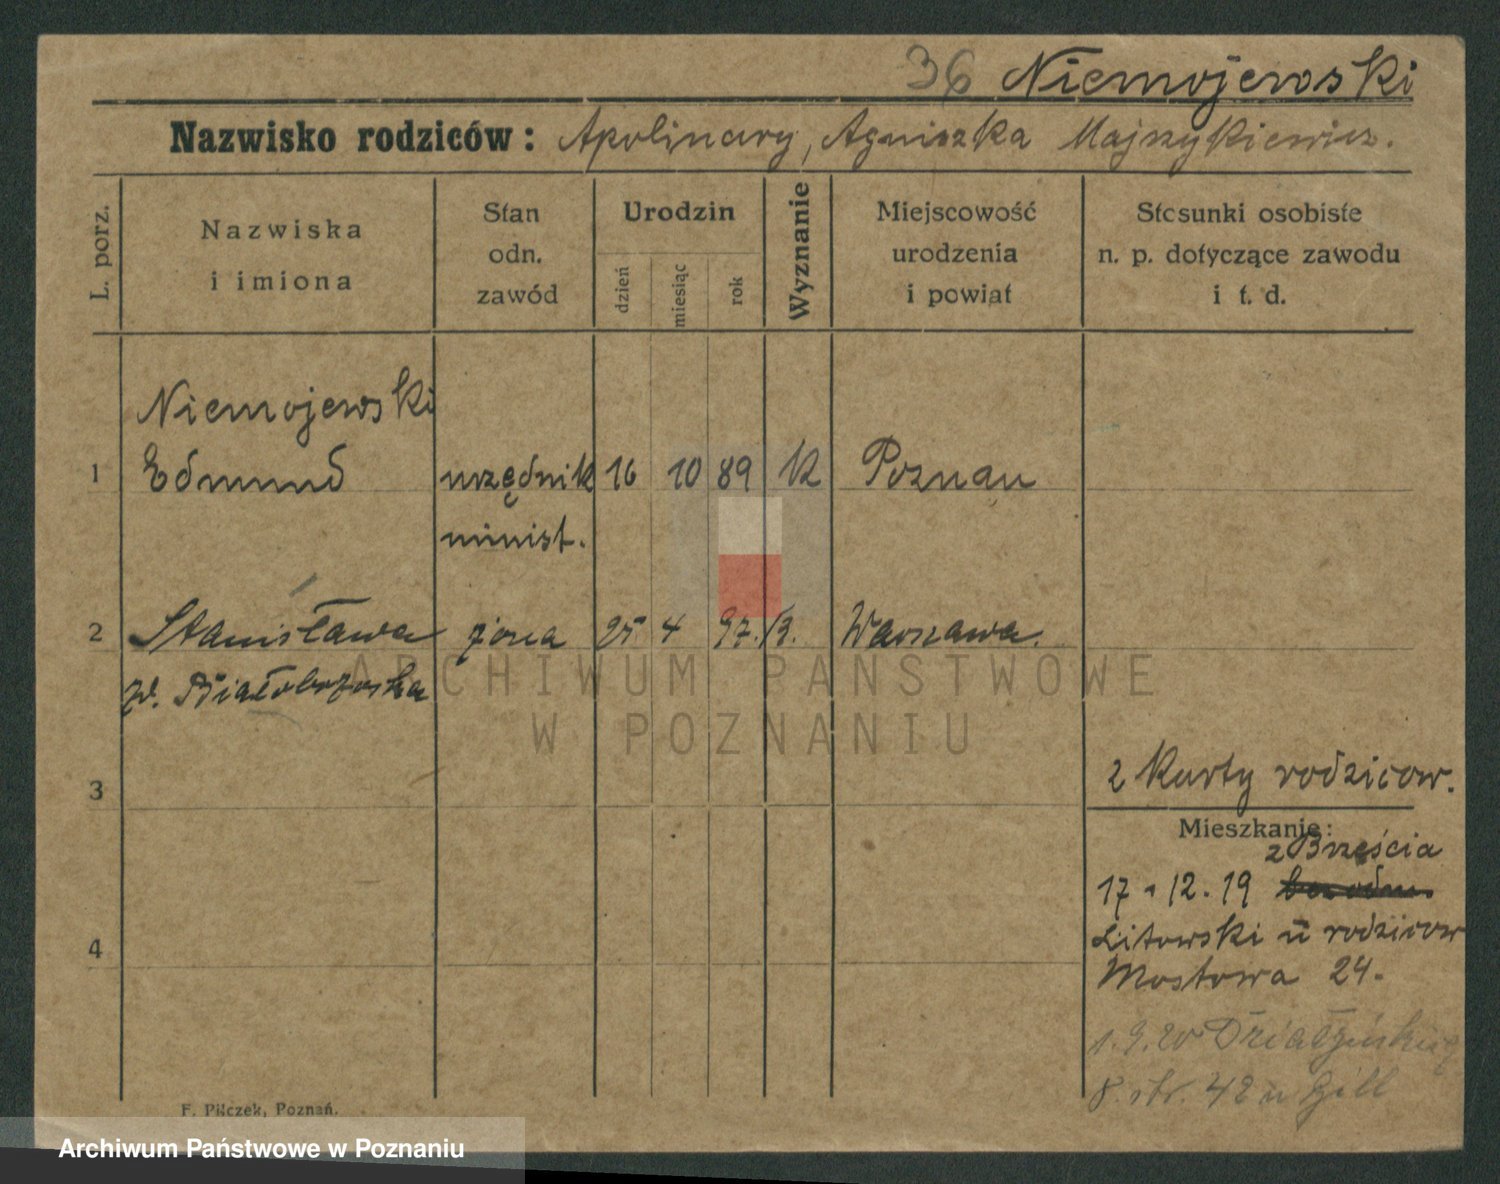 36 Niemojewski
Nazwisko rodziców: Apolinary, Agnieszka Majzykiewicz.
L. porz.
Nazwiska i imiona
Stan odn. zawód
Urodzin
dzień
miesiąc
rok
Wyznanie
Miejscowość urodzenia i powiat
Stosunki osobiste n. p. dotyczące zawodu i t. d.
Niemojewski
1 Edmund urzędnik 16 10 89 K Poznań
minist.
2 Stanisława żona 25 4 97. Warszawa.
z d. Białobrzeska
ARCHIWUM PAŃSTWOWE
W POZNANIU
3 2 Karty rodzicow.
Mieszkanie:
z Brześcia
17. 12. 19
4 Litowski u rodzicow
Mostowa 24.
1. 9. 20 Działyńskich
8. str. 42 u Gill
F. Pilczek, Poznań.
Archiwum Państwowe w Poznaniu